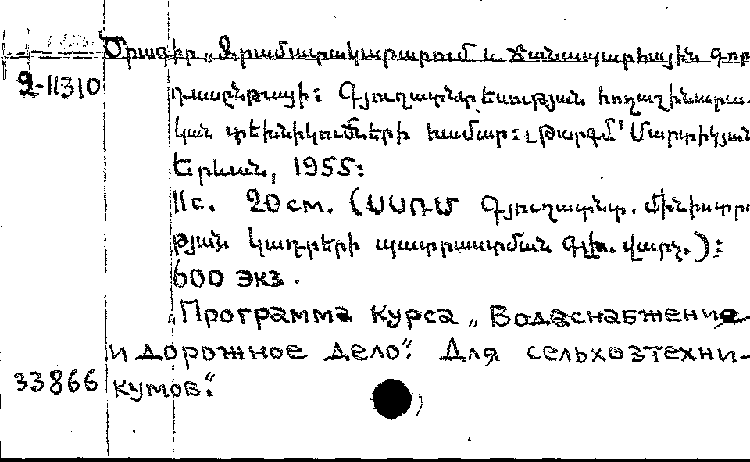 Ծրագիր „Ջրամատակարարում և ճանապարհային գոր-
Ջ-11310 դասընթացի: Գյուղատնտեսության հողաշինարա-
կան տեխնիկումների համար: Թարգմ՝ Մարտիկյան
Երևան, 1955:
11с. 20 см. (ՍՍՌՄ Գյուղատնտ. մինիստրու-
թյան կադրերի պատրաստման գլխ. վարչ.):
600 экз.
„Программа курса „Водаснабжение
и дорожное дело". Для сельхозтехни-
33866 кумов".